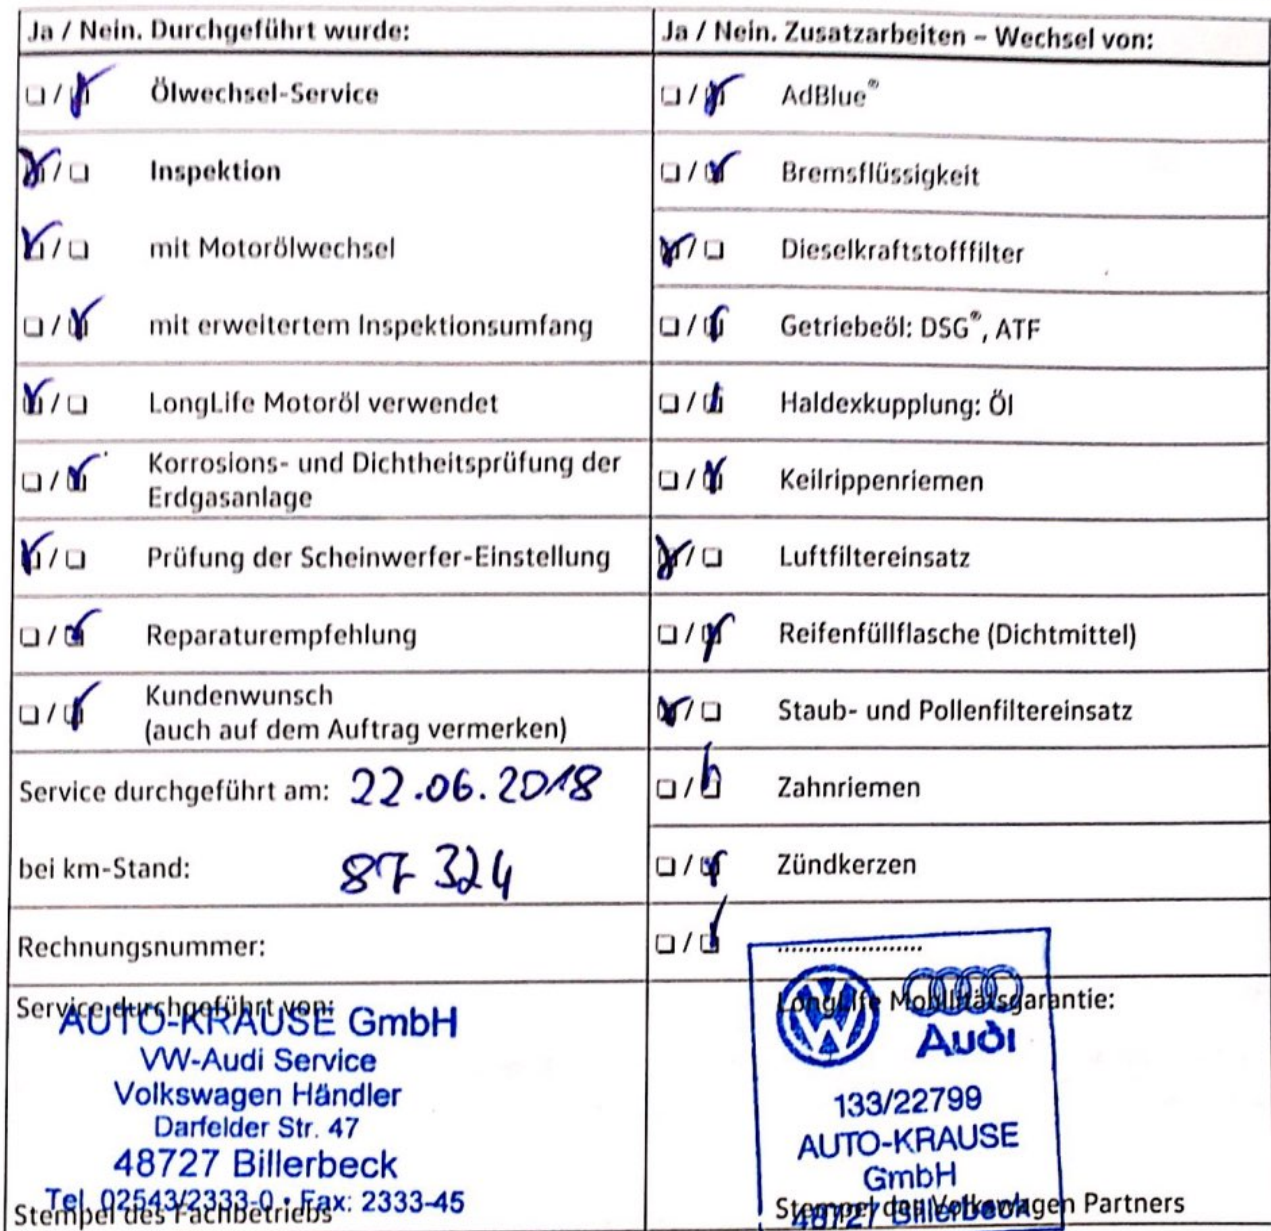 Ja / Nein. Durchgeführt wurde:
Ölwechsel-Service
Inspektion
mit Motorölwechsel
mit erweitertem Inspektionsumfang
LongLife Motoröl verwendet
Korrosions- und Dichtheitsprüfung der
Erdgasanlage
Prüfung der Scheinwerfer-Einstellung
Reparaturempfehlung
Kundenwunsch
(auch auf dem Auftrag vermerken)
Service durchgeführt am: 22.06.2018
bei km-Stand: 87 324
Rechnungsnummer:
Service durchgeführt von:
AUTO-KRAUSE GmbH
VW-Audi Service
Volkswagen Händler
Darfelder Str. 47
48727 Billerbeck
Tel. 02543/2333-0 • Fax: 2333-45
Stempel des Fachbetriebs
Ja / Nein. Zusatzarbeiten – Wechsel von:
AdBlue®
Bremsflüssigkeit
Dieselkraftstofffilter
Getriebeöl: DSG®, ATF
Haldexkupplung: Öl
Keilrippenriemen
Luftfiltereinsatz
Reifenfüllflasche (Dichtmittel)
Staub- und Pollenfiltereinsatz
Zahnriemen
Zündkerzen
.....................
LongLife Mobilitätsgarantie:
Audi
133/22799
AUTO-KRAUSE
GmbH
48727 Billerbeck
Stempel des Volkswagen Partners